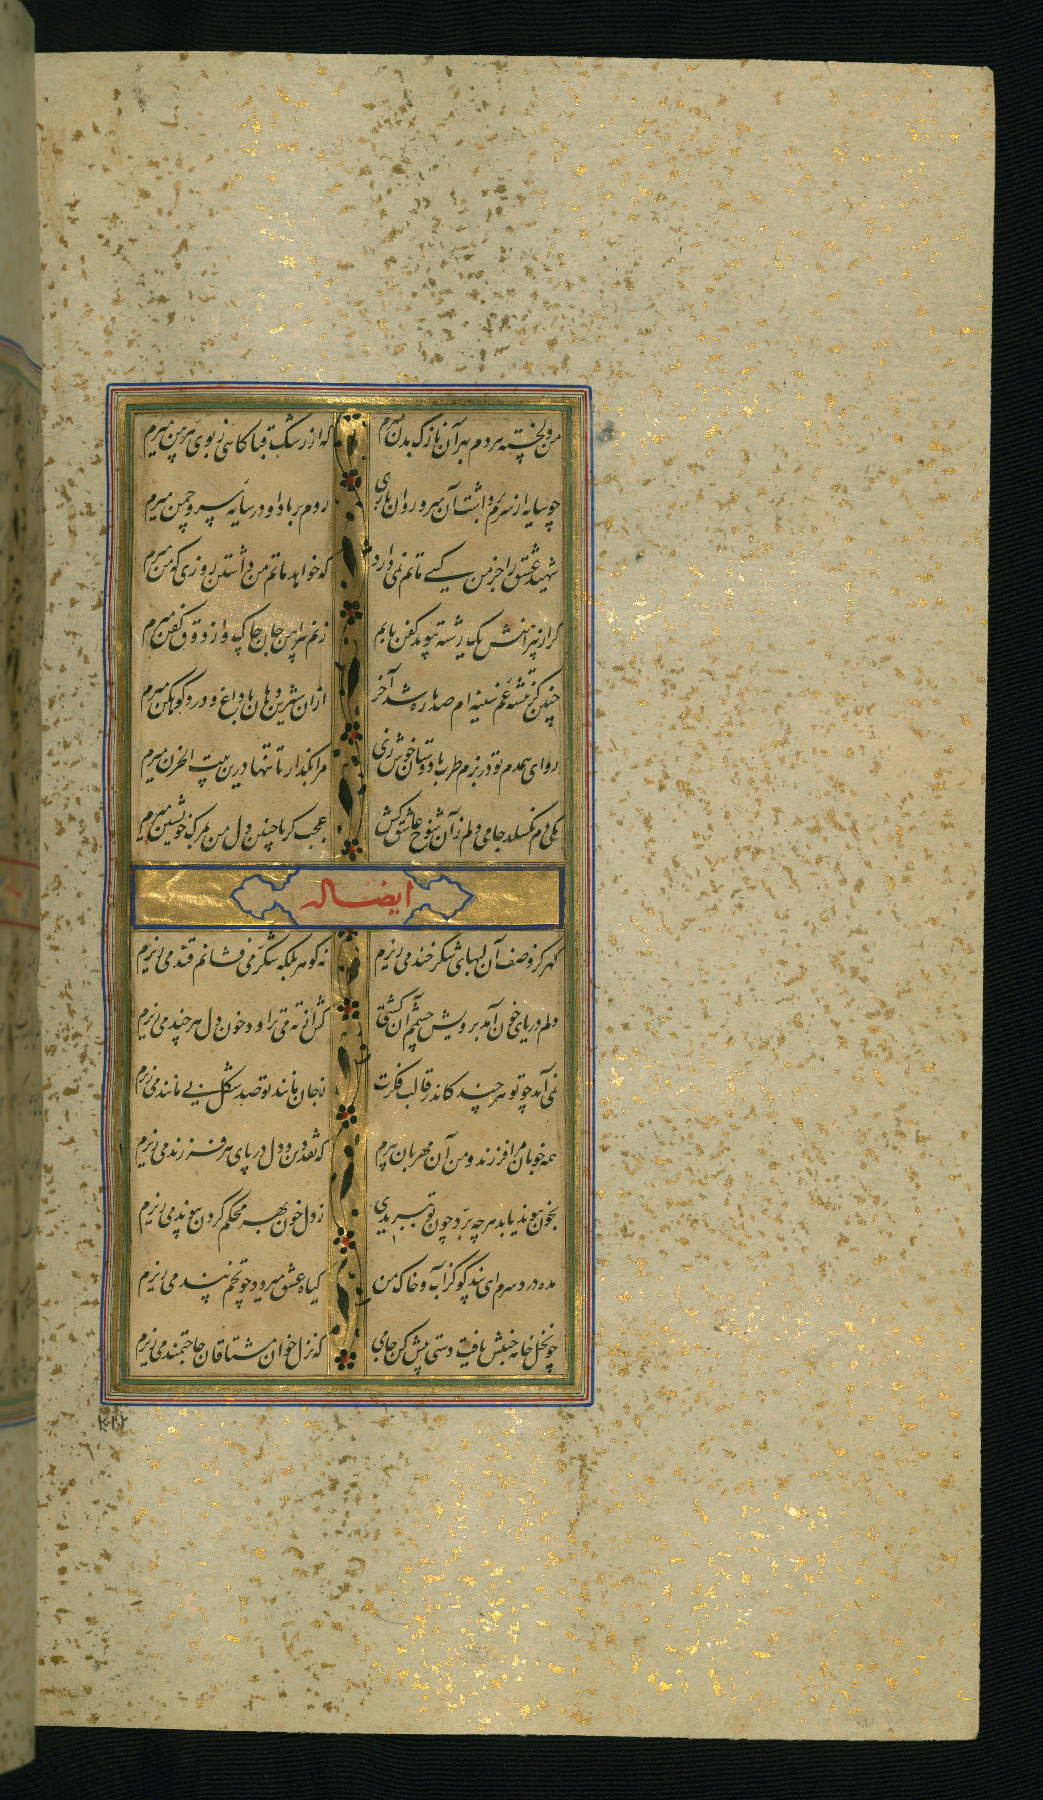 من دلخسته هر دم بهر آن نازک بدن میرم که از رشک قبا کاهی ز بوی پیرهن میرم
چو سایه از سرم برداشت آن سرو روان باری روم بر یاد او در سایه سرو چمن میرم
شهید عشق را جز من کسی ماتم نمی‌دارد که خواهد ماتم من داشتن روزی که من میرم
گر از پیراهنش یک رشته پیوند کفن یابم زنم پیراهن جان چاک و از ذوق کفن میرم
چنین کز تیشه غم سینه‌ام صد پاره شد آخر ازان شیرین دهان با داغ و درد کوهکن میرم
رو ای همدم تو در بزم طرب با دوستان خوش زی مرا بگذار تا تنها درین بیت الحزن میرم
یکی دم نگسلد جامی دلم زآن شوخ عاشق کش عجب گر با چنین دل من بمرگ خویشتن میرم
ایضا له
گهر کز وصف آن لبهای شکر خند می ریزم نه گوهر بلکه شکر می فشانم قند می ریزم
دلم دریای خون آمد برویش چشم آن کشتی کش از ته می تراود خون دل هر چند می ریزم
نمی آید چو تو هر چند کاندر قالب فکرت ز جان مانند تو صد شکل بی مانند می ریزم
همه خوبان مرا فرزند و من آن مهربان پیرم که نقد دین و دل در پای هر فرزند می ریزم
بخون پیوند یابد هر چه برد چون تو ببریدی ز دل خون بهر محکم کردن پیوند می ریزم
مده درد سرم ای پند گو کز آب و خاک من گیاه عشق میروید چو تخم پند می ریزم
چو نخل خامه جنبش یافت دستی پیش کن جامی که نزل خوان مشتاقان حاجتمند می ریزم